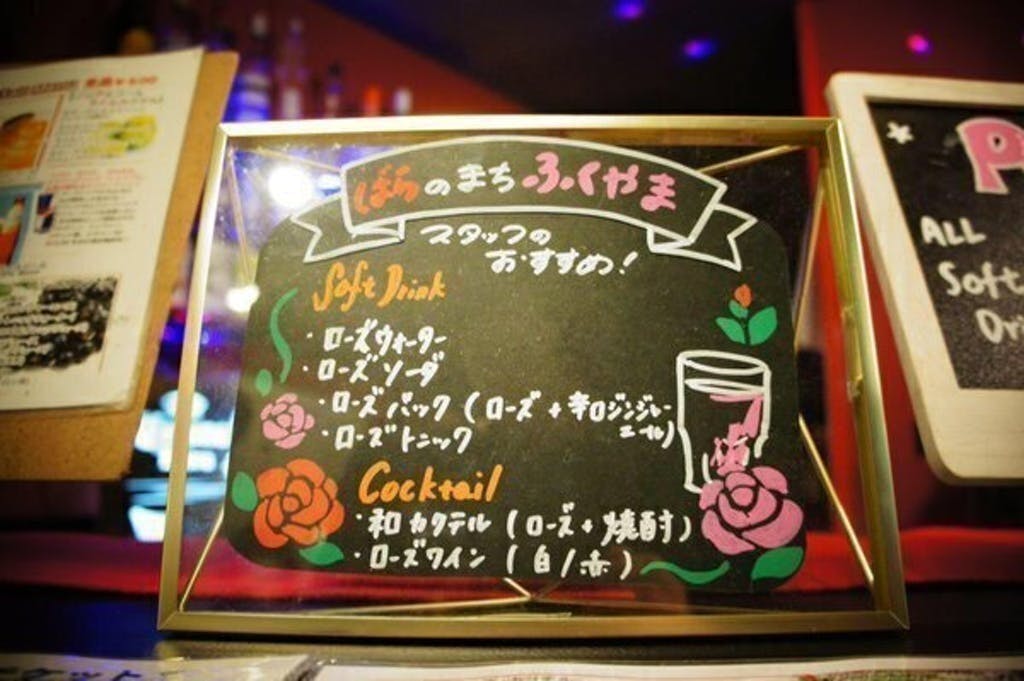 ばらのまちふくやま
スタッフの
おすすめ!
Soft Drink
・ローズウォーター
・ローズソーダ
・ローズバック(ローズ+辛口ジンジャー
エール)
・ローズトニック
Cocktail
・和カクテル(ローズ+焼酎)
・ローズワイン(白/赤)
P
ALL
Soft
Dri